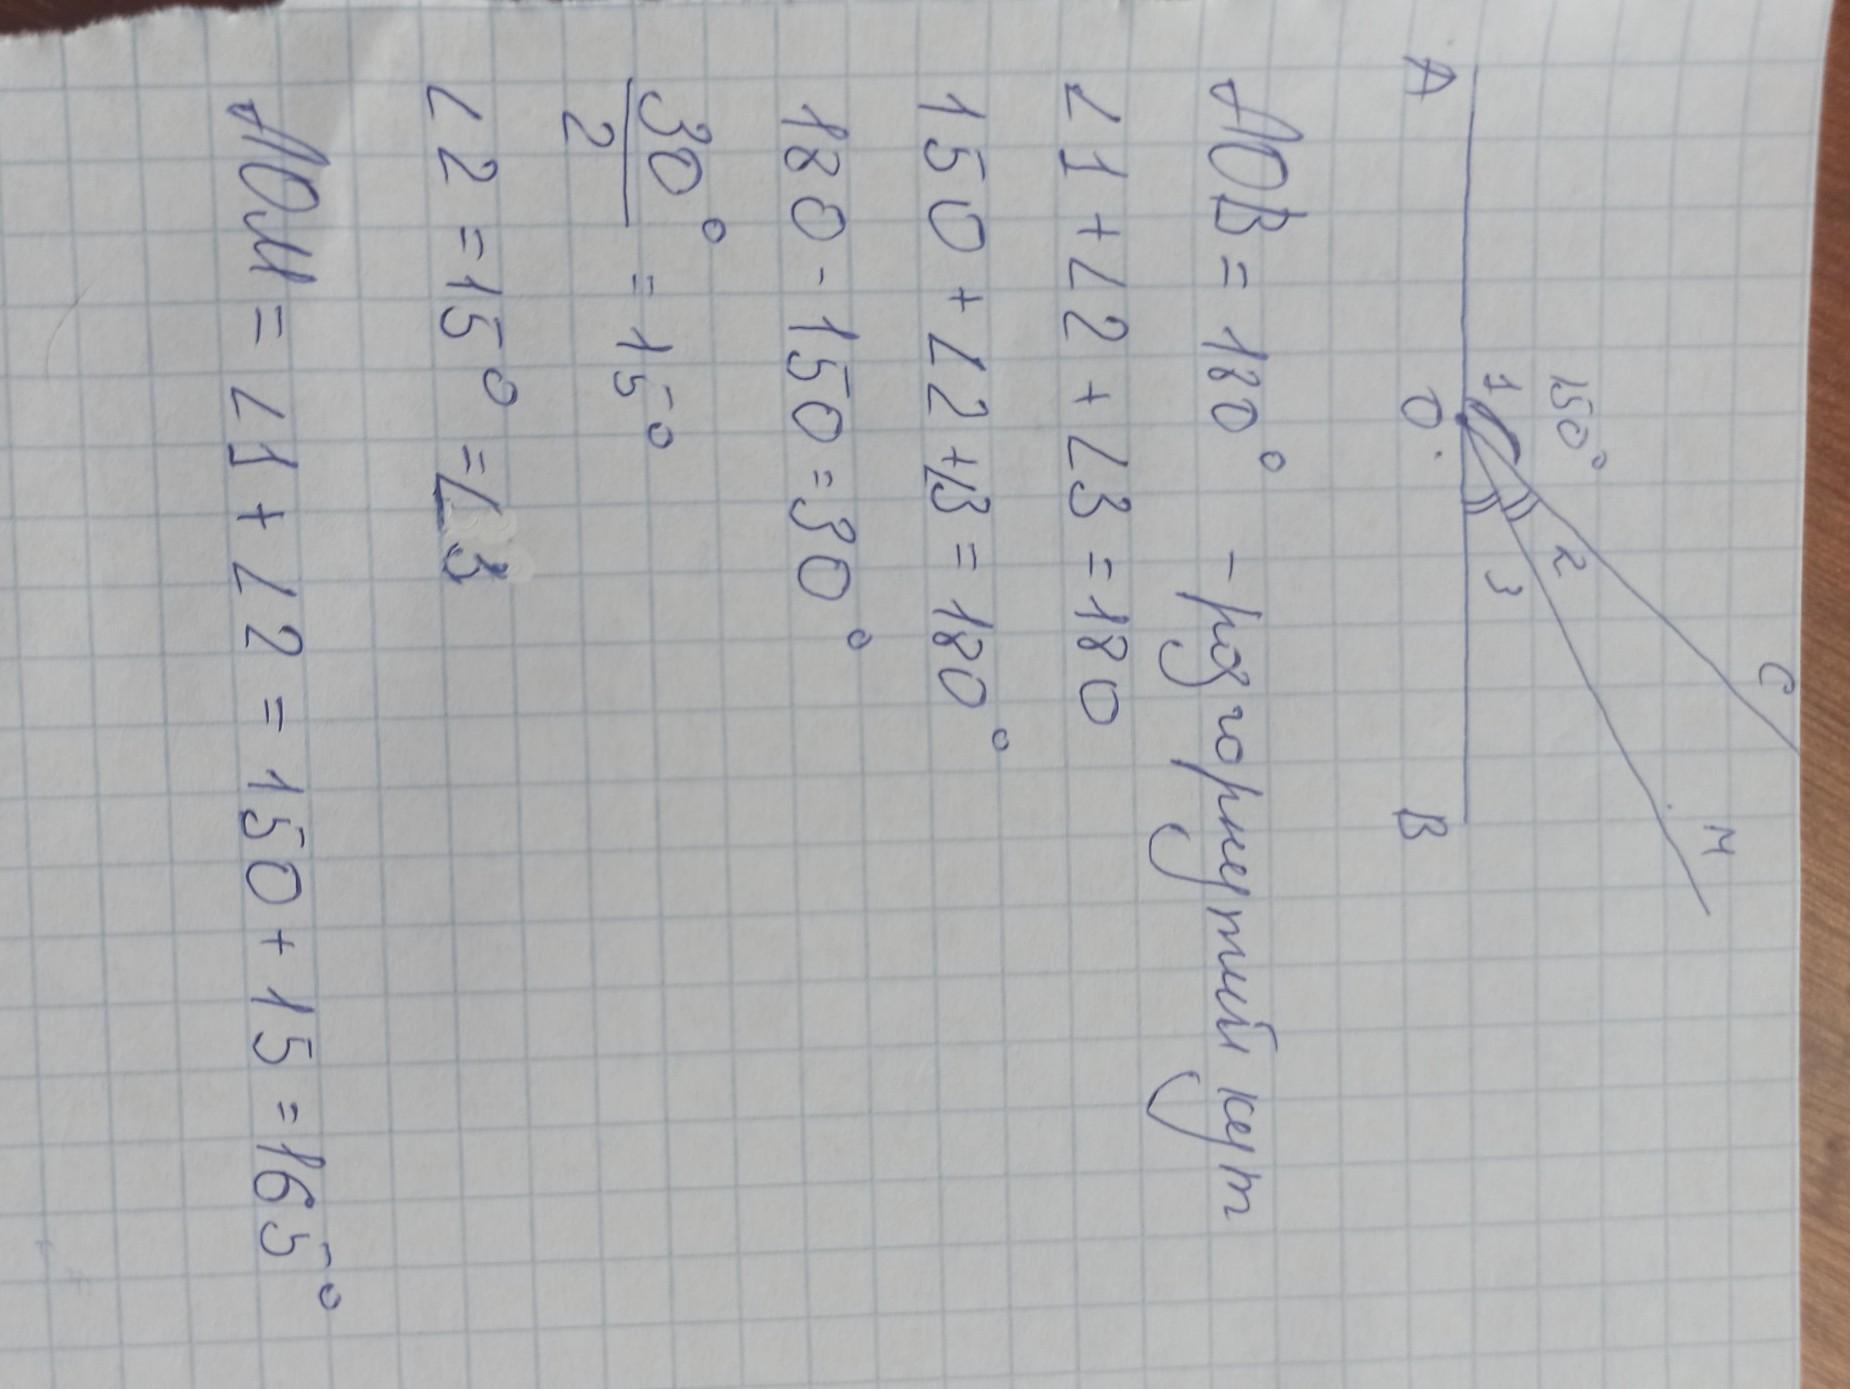 150°
C
M
1
2
3
A
O
B
AOB = 180° - розгорнутий кут
∠1 + ∠2 + ∠3 = 180
150 + ∠2 + ∠3 = 180°
180 - 150 = 30°
30°/2 = 15°
∠2 = 15° = ∠3
AOM = ∠1 + ∠2 = 150 + 15 = 165°